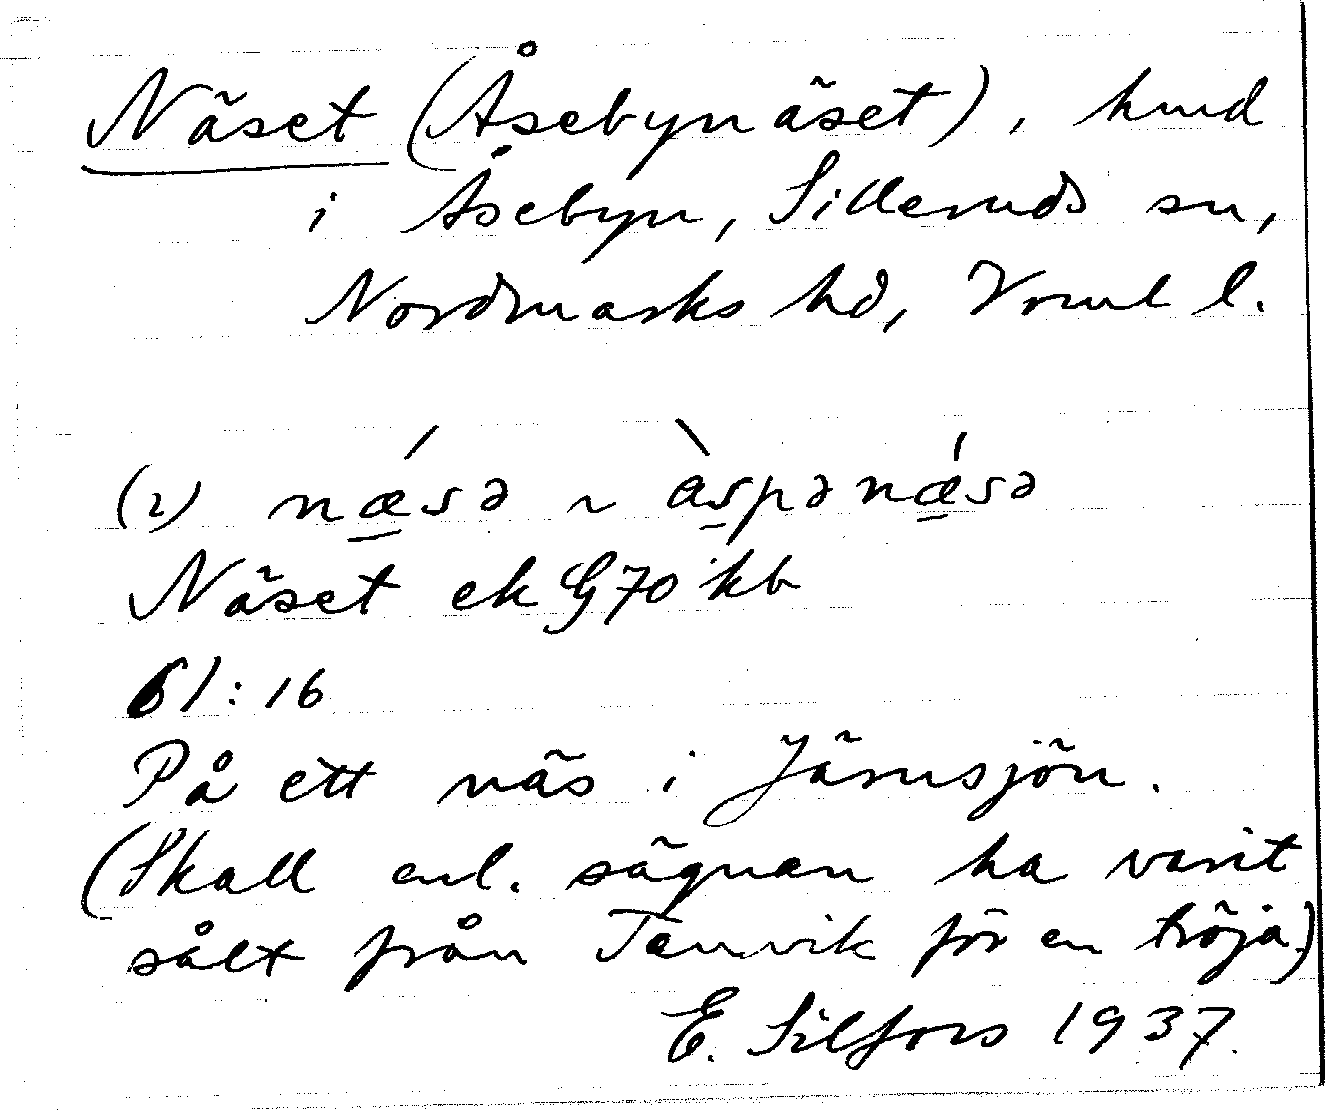 Näset (Åsebynäset), hmd
i Åsebyn, Silleruds sn,
Nordmarks hd, Vrml l.
(2) nǽ̲sə ~ às̲pənǽ̲sə
Näset ek G70 kb
61:16
På ett näs i Järnsjön.
(Skall enl. sägnen ha varit
sålt från Tenvik för en tröja.)
E. Silfors 1937.